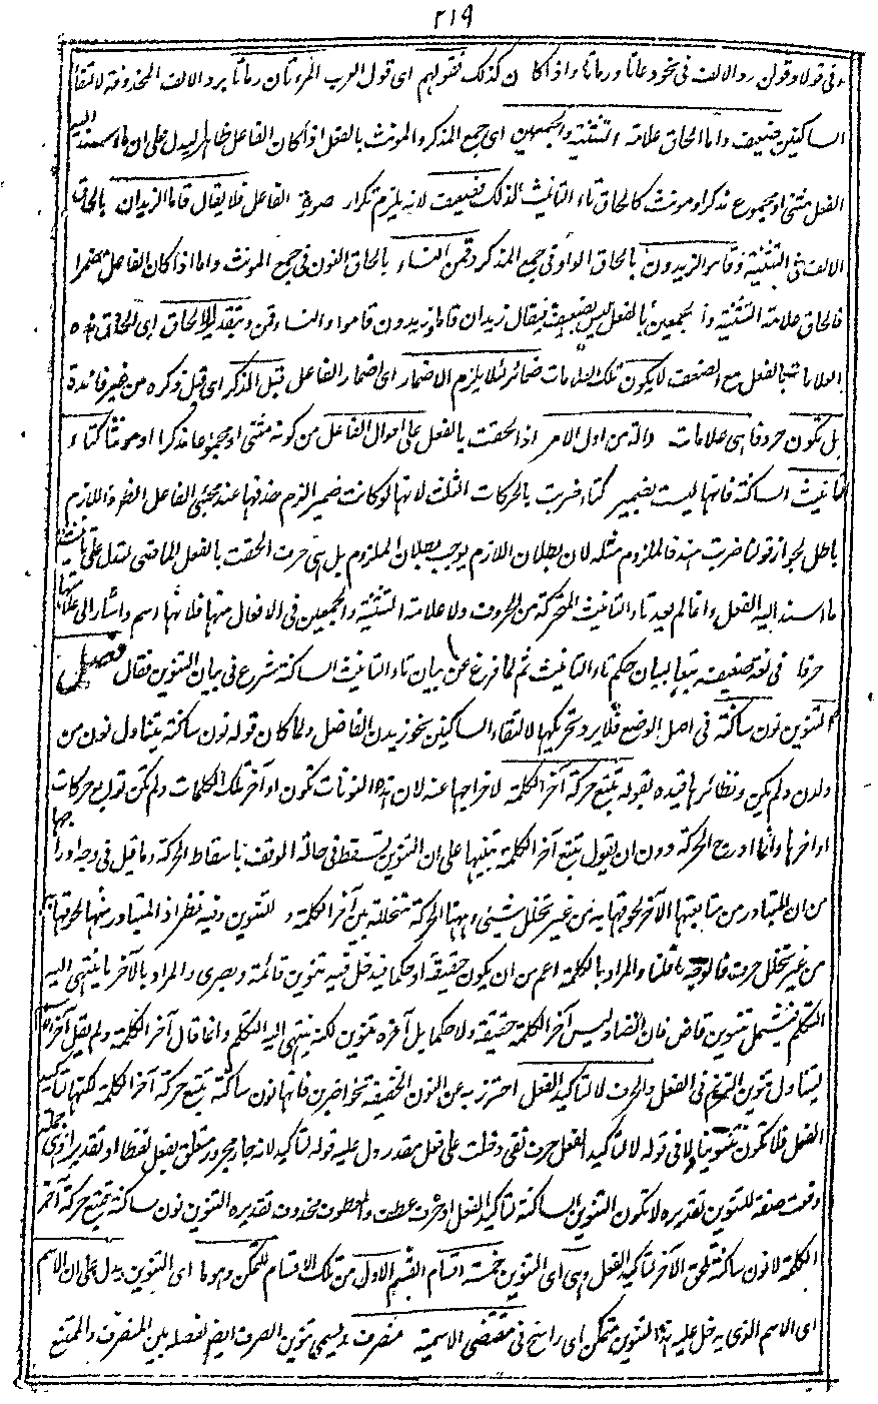 ٢١٩
وفى قولا وقولن رد الالف فى نحو دعاتا ورماتا واذا كان كذلك فقولهم اى قول العرب المرءتان رماتا برد الالف المحذوفة لالتقاء
الساكنين ضعيف واما الحاق علامة التثنية والجمعين اى جمع المذكر والمونث بالفعل اذا كان الفاعل ظاهرا ليدل على ان ما اسند اليه
الفعل مثنى او مجموع مذكرا ومونث كالحاق تاء التانيث لذلك فضعيف لانه يلزم تكرار صورة الفاعل فلا يقال قاما الزيدان بالحاق
الالف فى التثنية وقاموا الزيدون بالحاق الواو فى جمع المذكر وقمن النساء بالحاق النون فى جمع المونث واما اذا كان الفاعل مضمرا
فالحاق علامة التثنية والجمعين بالفعل ليس بضعيف فيقال زيدان قاما وزيدون قاموا والنساء قمن وبتقدير الالحاق اى الحاق هذه
العلامات بالفعل مع الضعف لا يكون تلك العلامات ضمائر لئلا يلزم الاضمار اى اضمار الفاعل قبل الذكر اى قبل ذكره من غير فائدة
بل تكون حروفا اى علامات دالة من اول الامر اذ الحقت بالفعل على احوال الفاعل من كونه مثنى او مجموعا مذكرا او مونثا كتاء
تانيث الساكنة فانها ليست بضمير كتاء ضربت بالحركات الثلث لانها لو كانت ضميرا لزم حذفها عند مجئ الفاعل الظاهر واللازم
باطل لجواز قولنا ضربت هند فالملزوم مثله لان بطلان اللازم يوجب بطلان الملزوم بل هى حرف الحقت بالفعل الماضى لتدل على تانيث
ما اسند اليه الفعل وانما لم يعد تاء التانيث المتحركة من الحروف ولا علامة التثنية والجمعين فى الافعال منها فلانها اسم واشار الى علامتها
حرفا فى لغة ضعيفة تبعا لبيان حكم تاء التانيث ثم لما فرغ عن بيان تاء التانيث الساكنة شرع فى بيان التنوين فقال فصل
التنوين نون ساكنة فى اصل الوضع فلا يرد تحريكها لالتقاء الساكنين نحو زيدن الفاضل ولما كان قوله نون ساكنة يتناول نون من
ولدن ولم يكن ونظائرها قيده بقوله تتبع حركة آخر الكلمة لاخراجها عنه لان هذه النونات تكون اواخر تلك الكلمات ولم تكن توابع حركات
اواخرها وانما اورد الحركة دون ان يقول تتبع آخر الكلمة تنبيها على ان التنوين تسقط فى حالة الوقف باسقاط الحركة وما قيل فى وجه ايرادها
من ان المتبادر من متابعتها الآخر لحوقها به من غير تخلل شىء وههنا الحركة متخللة بين آخر الكلمة و للتنوين وفيه نظر اذ المتبادر منها لحوقها به
من غير تخلل حرف فالوجه ما قلنا والمراد بالكلمة اعم من ان يكون حقيقة او حكما فيدخل فيه تنوين قائمة وبصرى والمراد بالآخر ما ينتهى اليه
التكلم فيشمل تنوين قاض فان الضاد ليس آخر الكلمة حقيقة ولا حكما بل آخره تنوين لكنه ينتهى اليه التكلم وانما قال آخر الكلمة ولم يقل آخر الاسم
ليتناول تنوين الترنم فى الفعل والحرف لا لتاكيد الفعل احترز به عن النون الخفيفة نحو اضربن فانها نون ساكنة تتبع حركة آخر الكلمة لكنها لتاكيد
الفعل فلا تكون تنوينا لا فى قوله لا لتاكيد الفعل حرف نفى دخلت على فعل مقدر دل عليه قوله لتاكيد لانه جار مجرور متعلق بفعل لفظا او تقديرا وهى جملة
وقعت صفة للتنوين تقديره لا تكون التنوين الساكنة لتاكيد الفعل او حرف عطف والمعطوف محذوف تقديره التنوين نون ساكنة تتبع حركة آخر
الكلمة لا نون ساكنة تلحق الآخر لتاكيد الفعل وهى اى التنوين خمسة اقسام القسم الاول من تلك الاقسام للتمكن وهو ما اى التنوين يدل على ان الاسم
اى الاسم الذى يدخل عليه هذا التنوين متمكن اى راسخ فى مقتضى الاسمية منصرف ويسمى تنوين الصرف ايضا لفصله بين المنصرف والممتنع